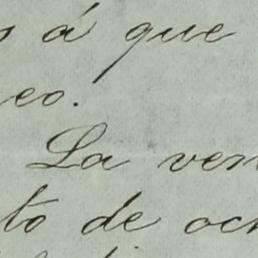 s á que
eo.
La ven
to de oc